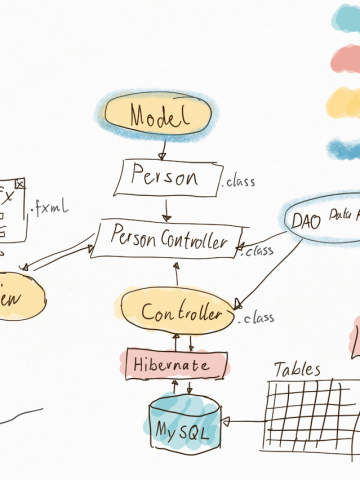 Model
Person
.class
.fxml
Person Controller
.class
DAO Data
Controller
.class
Hibernate
Tables
MySQL